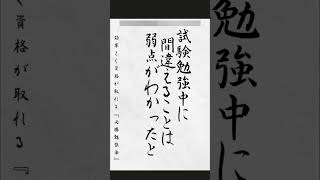 試験勉強中に
間違えることは
弱点がわかったと
効率よく資格が取れる『必勝勉強法』
く資格が取れる『